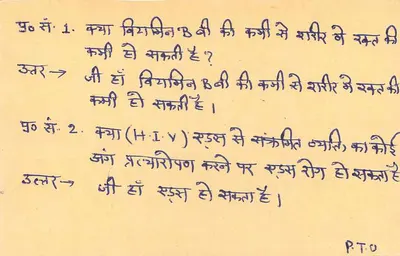 प्र० सं. 1. क्या विटामिन B बी की कमी से शरीर में रक्त की
कमी हो सकती है ?
उत्तर → जी हाँ विटामिन B बी की कमी से शरीर में रक्त की
कमी हो सकती है ।
प्र० सं. 2. क्या (H.I.V) एड्स से संक्रमित व्यक्ति का कोई
अंग प्रत्यारोपण करने पर एड्स रोग हो सकता है
उत्तर → जी हाँ एड्स हो सकता है ।
P.T.O